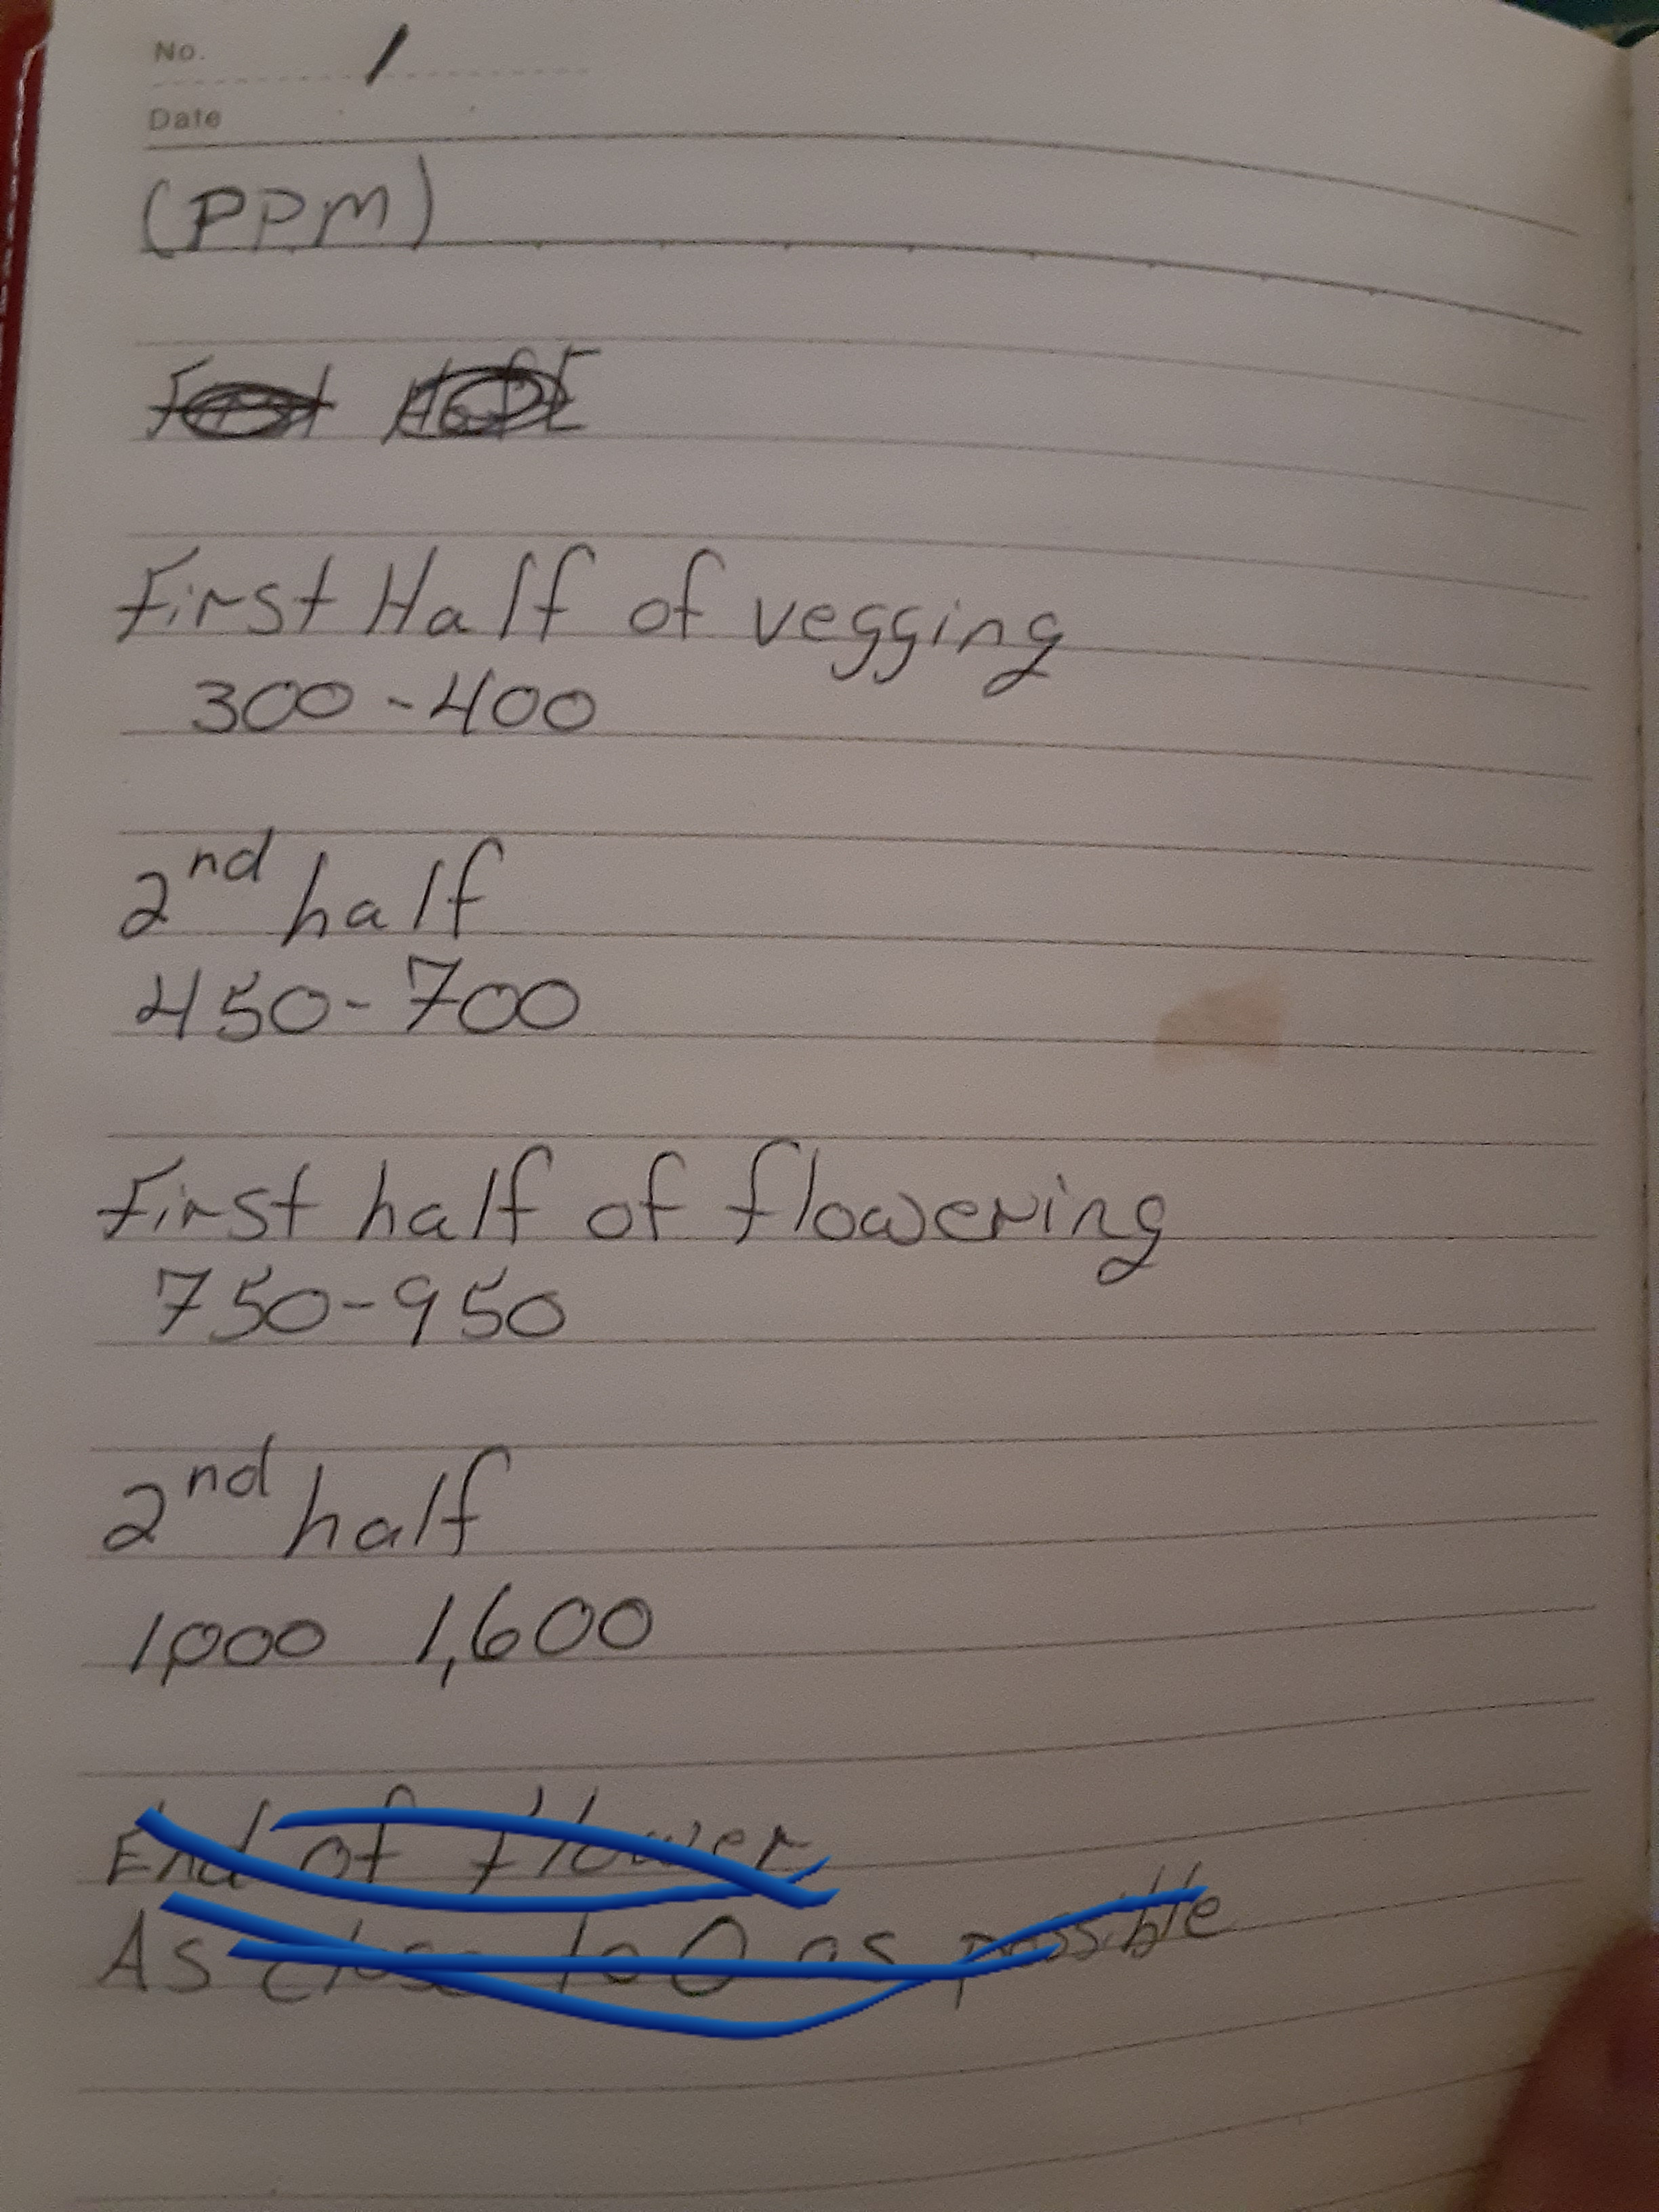 No. 1
Date
(PPM)
First Half of vegging
300-400
2nd half
450-700
First half of flowering
750-950
2nd half
1,000 1,600
End of flower
As close to 0 as possible